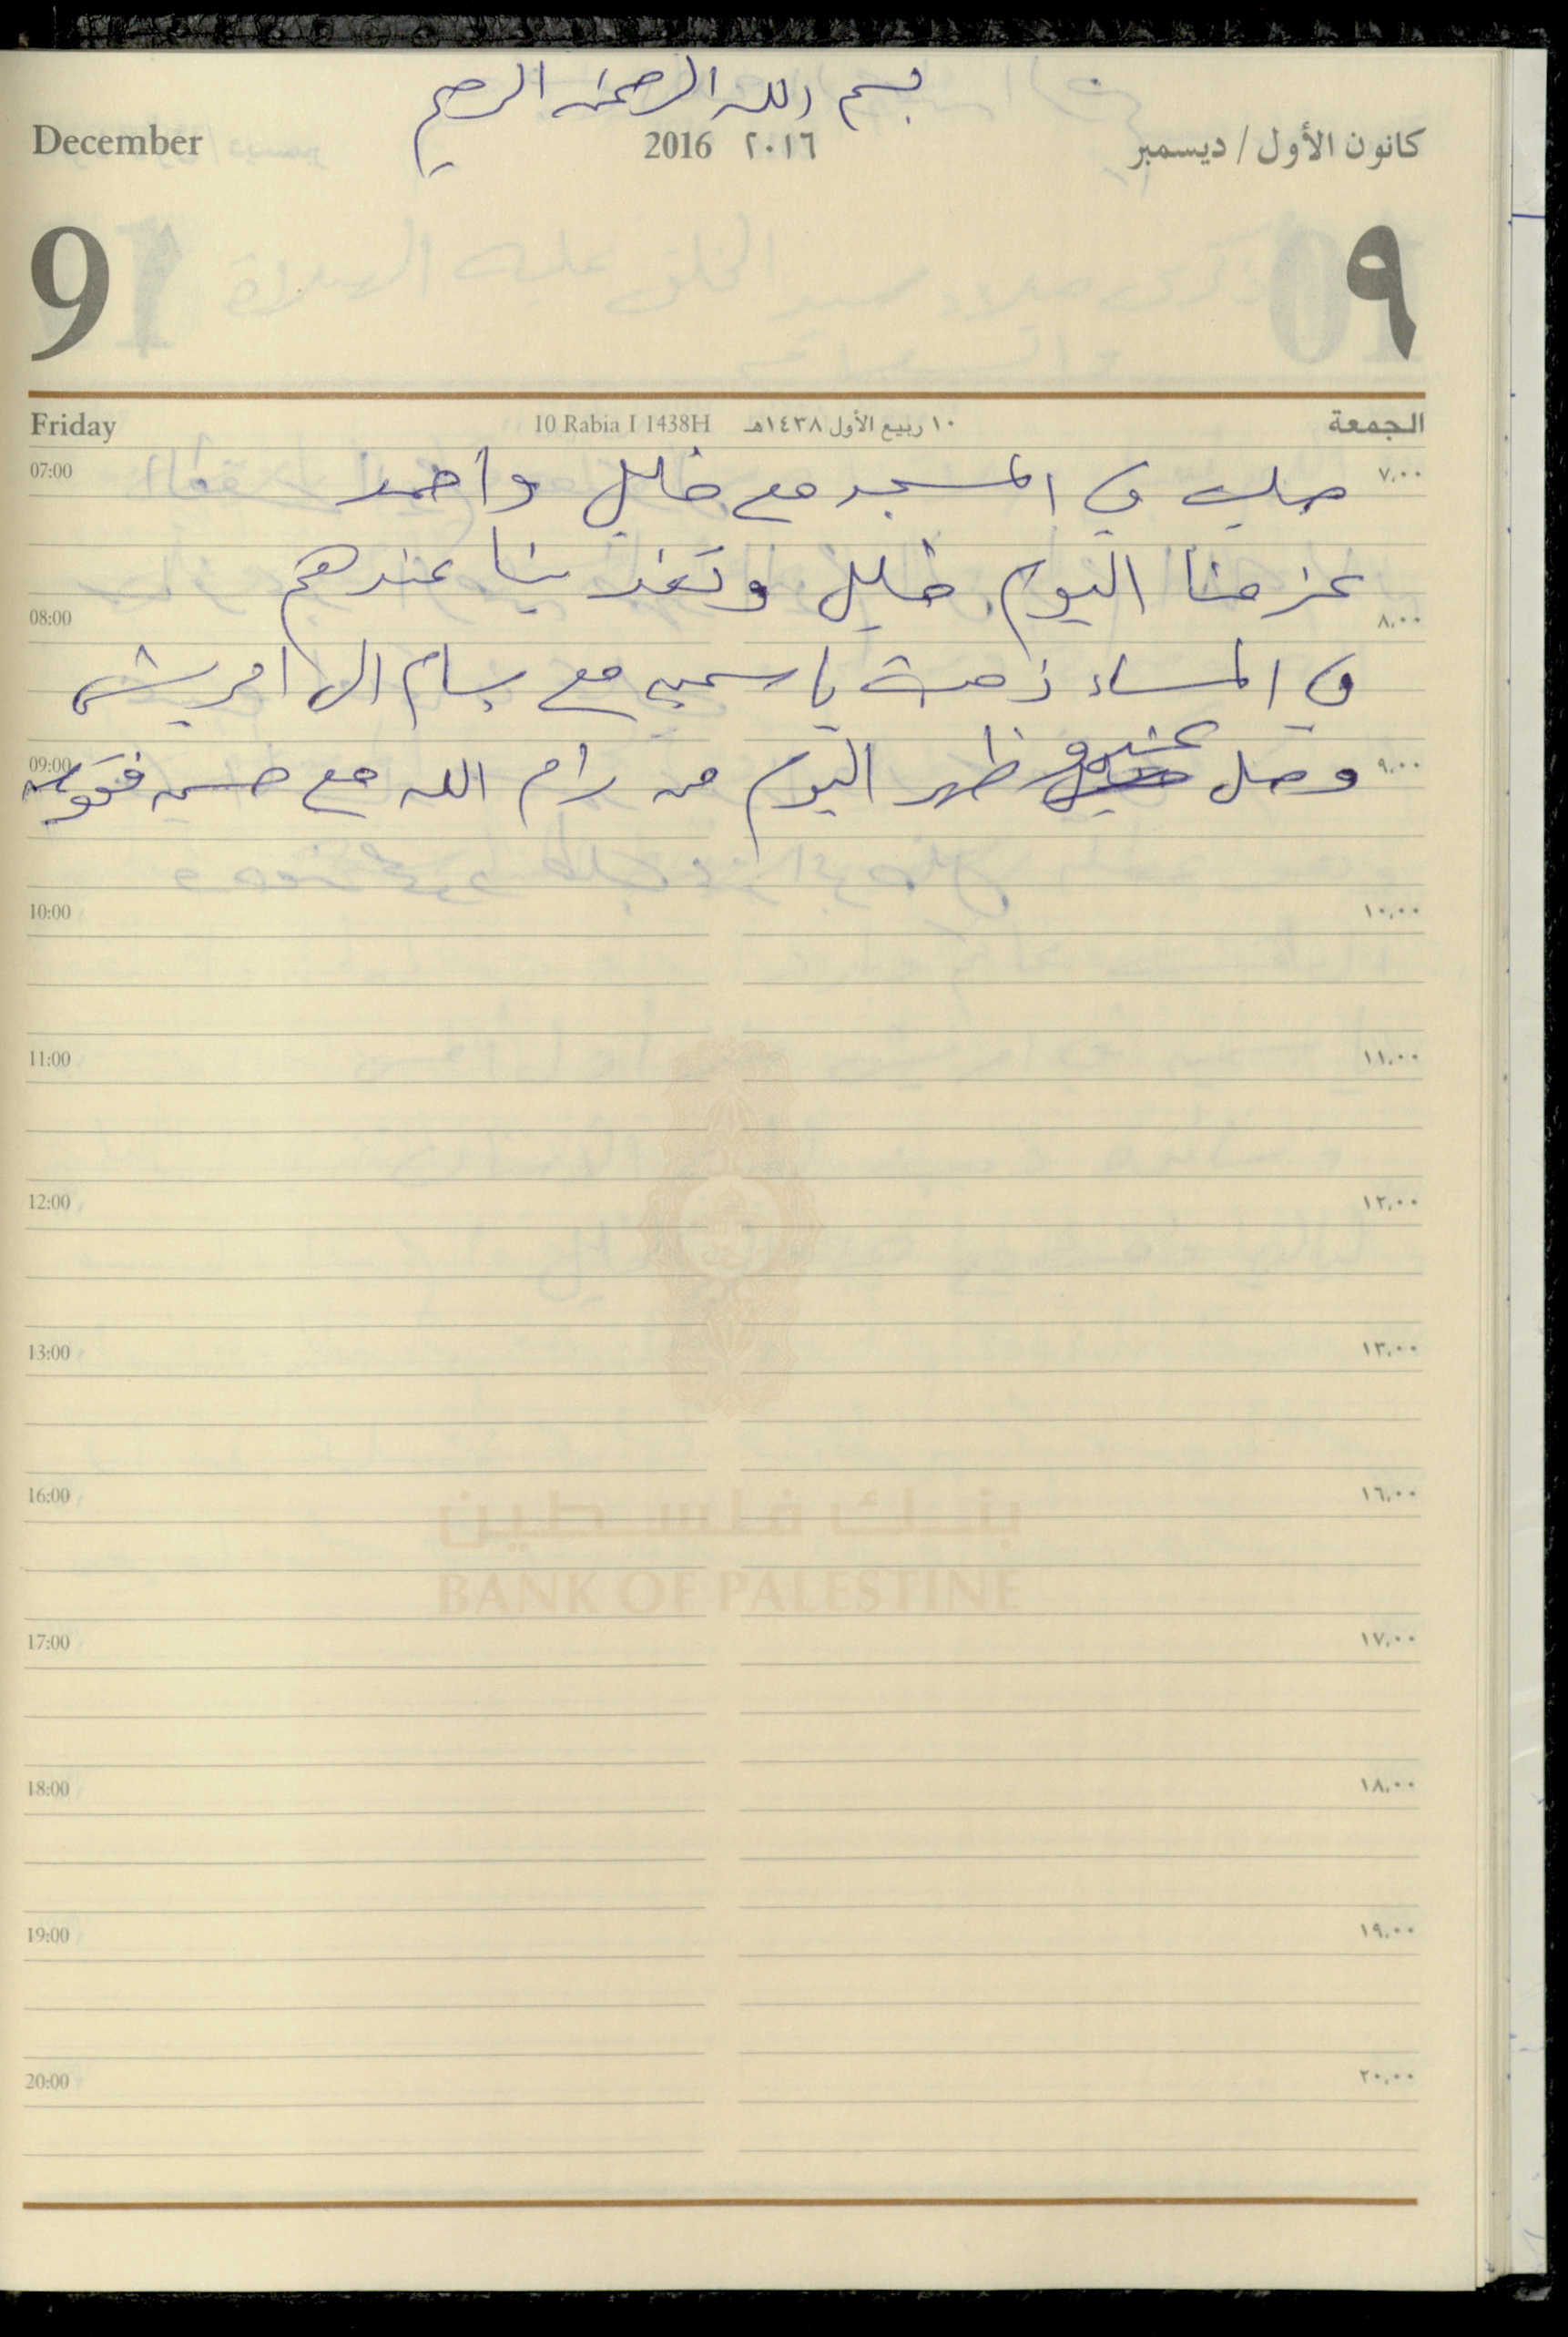 بسم الله الرحمن الرحيم
December 2016 ٢٠١٦ كانون الأول / ديسمبر
9 ٩
Friday 10 Rabia I 1438H ١٠ ربيع الأول ١٤٣٨هـ الجمعة
07:00 صليت في المسجد مع خليل وأحمد ٧,٠٠
عزمنا اليوم خليل وتغدينا عندهم
08:00 ٨,٠٠
في المساء ذهبت ياسمين مع بسام الى امريش
09:00 وصل عنبر ظهر اليوم من رام الله مع حسن ٩,٠٠
10:00 ١٠,٠٠
11:00 ١١,٠٠
12:00 ١٢,٠٠
13:00 ١٣,٠٠
16:00 ١٦,٠٠
بنك فلسطين
BANK OF PALESTINE
17:00 ١٧,٠٠
18:00 ١٨,٠٠
19:00 ١٩,٠٠
20:00 ٢٠,٠٠